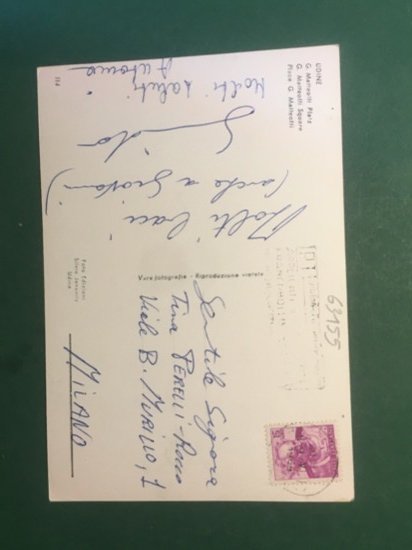 UDINE
G. Matteotti Platz
G. Matteotti Square
Piazza G. Matteotti
Molti saluti
Molti baci
(anche a Giovanni)
114
Vera fotografia - Riproduzione vietata
Foto Edizioni
Udine
63955
Gentile Signora
Tina PERELLI
Viale B. MURILLO, 1
MILANO